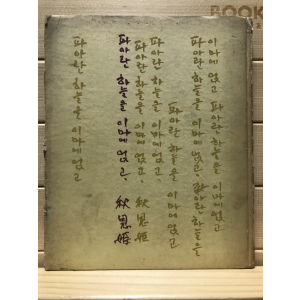 BOOK
이마에 얹고 파아란 하늘을 이마에 얹고
파아란 하늘을 이마에 얹고, 파아란 하늘을
파아란 하늘을 이마에 얹고
파아란 하늘을 이마에 얹고, 秋恩姬
파아란 하늘을 이마에 얹고, 秋恩姬
파아란 하늘을 이마에 얹고